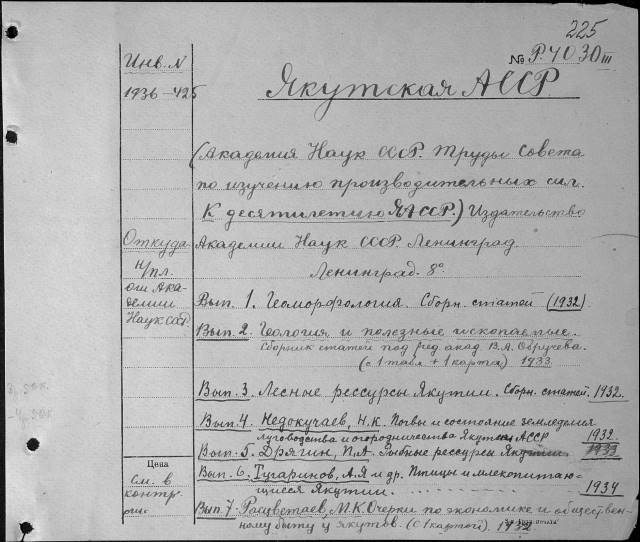 225
№ Р.4030 III
Инв. N
1936-425
Якутская АССР.
(Академия Наук СССР. Труды Совета
по изучению производительных сил.
К десятилетию ЯАССР.) Издательство
Академии Наук СССР. Ленинград
Ленинград. 8°.
Откуда
н/пл.
от Ака-
демии
Наук СССР.
Вып. 1. Геоморфология. Сборн. статей (1932)
Вып. 2. Геология и полезные ископаемые.
Сборник статей под ред. акад. В.А. Обручева.
(с 1 табл + 1 карта) 1933
Вып. 3. Лесные рессурсы Якутии. Сборн. статей. 1932.
Вып. 4. Недокучаев, Н.К. Почвы и состояние земледелия
луговодства и огородничества Якутск АССР 1932
Вып. 5. Дрягин, П.А. Рыбные рессурсы Якутии. 1933
Вып. 6. Тугаринов, А.Я и др. Птицы и млекопитаю-
щиеся Якутии. 1934
Вып. 7. Расцветаев, М.К. Очерки по экономике и обществен-
ному быту у якутов. (с 1 картой). 1932
Цена
См. в
контр.